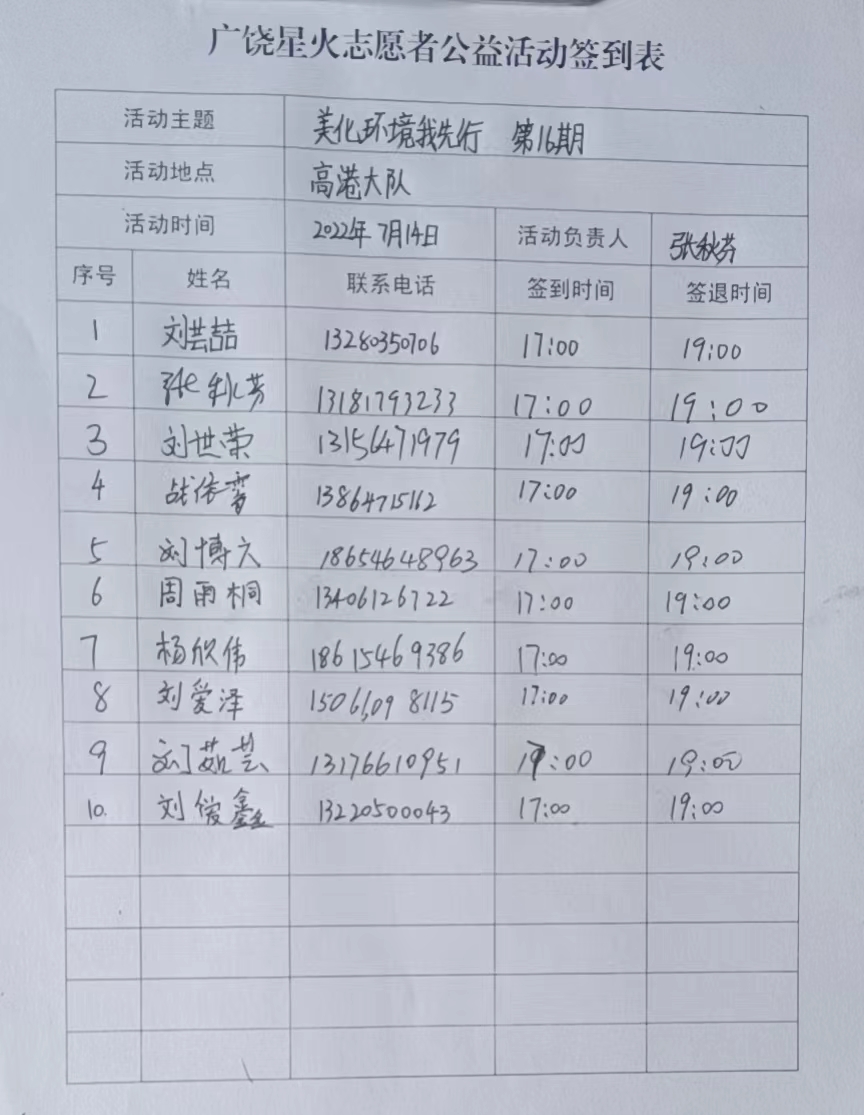 广饶星火志愿者公益活动签到表
活动主题 美化环境我先行 第16期
活动地点 高港大队
活动时间 2022年7月14日 活动负责人 张秋芬
序号 姓名 联系电话 签到时间 签退时间
1 刘芸喆 13280350706 17:00 19:00
2 张秋芬 13181793233 17:00 19:00
3 刘世荣 13156471979 17:00 19:00
4 战依 13864715162 17:00 19:00
5 刘博文 18654648963 17:00 19:00
6 周雨桐 13406126722 17:00 19:00
7 杨欣伟 18615469386 17:00 19:00
8 刘爱泽 15061098115 17:00 19:00
9 刘茹芸 13176610951 17:00 19:00
10. 刘俊鑫 13220500043 17:00 19:00